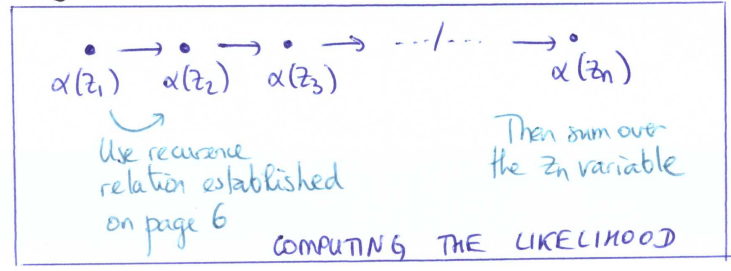 • → • → • → ---/--- → •
α(z₁) α(z₂) α(z₃) α(zn)
Use recurence
relation established
on page 6
Then sum over
the zn variable
COMPUTING THE LIKELIHOOD